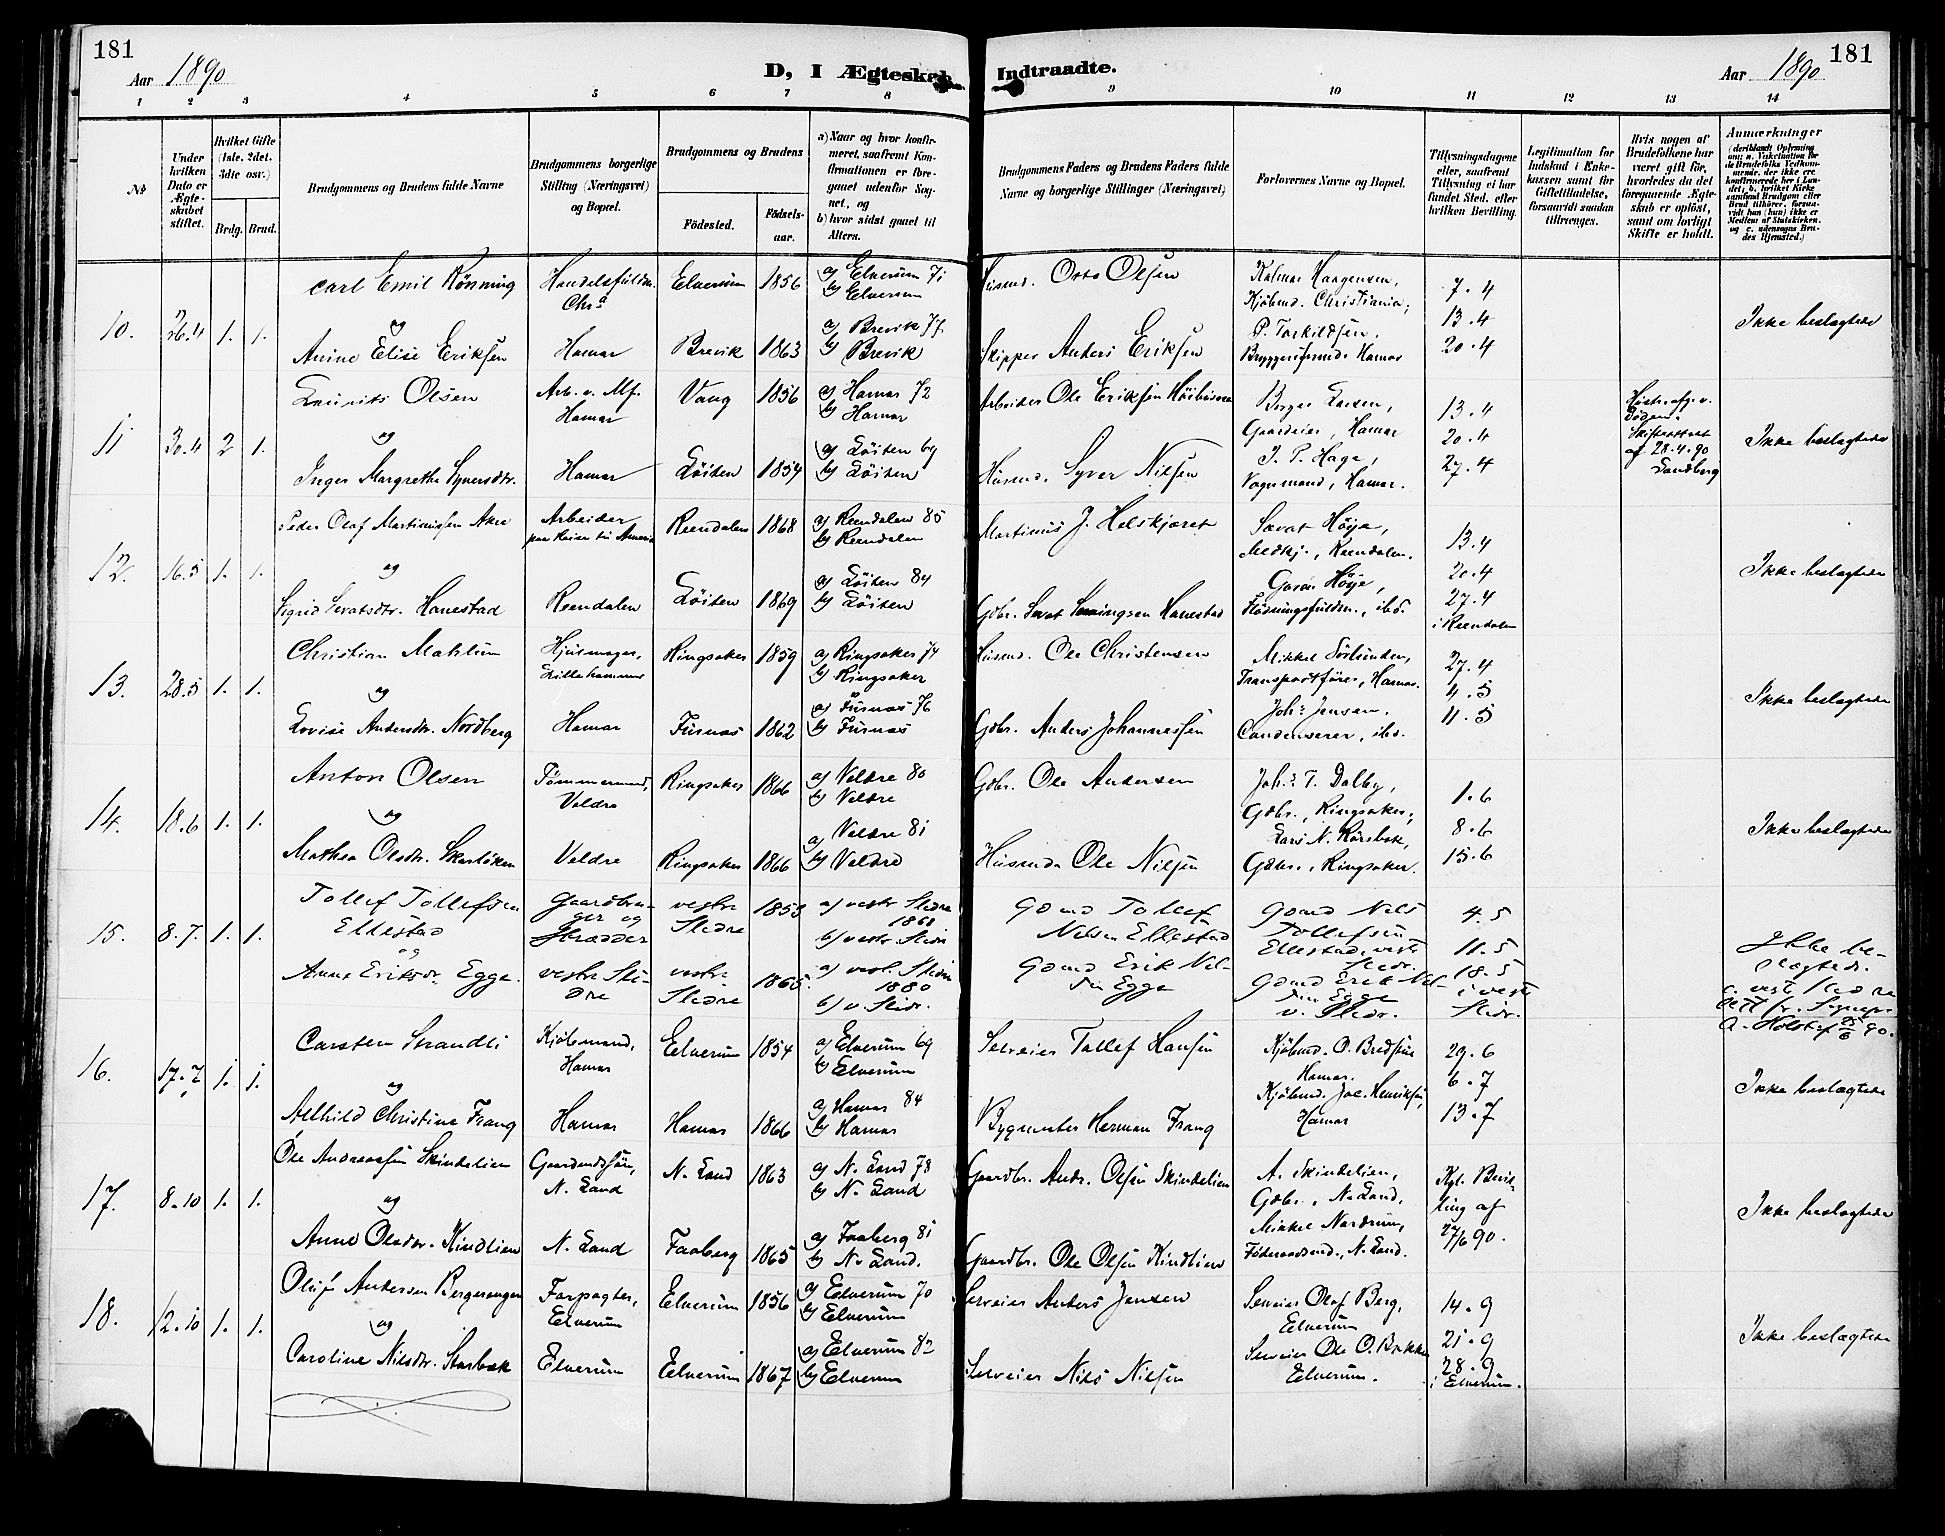 181
Aar 1890
D, I Ægteskab
Indtraadte.
Aar 1890
181
1 2 3 4 5 6 7 8 9 10 11 12 13 14
№
Under hvilken Dato er Ægteskabet stiftet.
Hvilket Gifte (1ste, 2det, 3die osv.)
Brdg. Brud.
Brudgommens og Brudens fulde Navne
Brudgommens borgerlige Stilling (Næringsvei) og Bopæl.
Brudgommens og Brudens
Fødested.
Fødselsaar.
a) Naar og hvor konfirmeret, saafremt Konfirmationen er foregaaet udenfor Sognet, og
b) hvor sidst gaaet til Alters.
Brudgommens Faders og Brudens Faders fulde Navne og borgerlige Stillinger (Næringsvei)
Forlovernes Navne og Bopæl.
Tillysningsdagene eller, saafremt Tillysning ei har fundet Sted, efter hvilken Bevilling.
Legitimation for Indskud i Enkekassen samt for Giftetilladelse, forsaavidt saadan tiltrænges.
Hvis nogen af Brudefolkene har været gift før, hvorledes da det foregaaende Ægteskab er opløst, samt om lovligt Skifte er holdt.
Anmærkninger
10. 26.4 1. 1.
Carl Emil Rønning
Chra
Elverum 1856
a) Elverum 71
b) Elverum
Husmd. Otto Olsen
Kalmar Haagensen,
Kjøbmd. Christiania;
7.4
og
Anine Elise Eriksen
Hamar
Brevik 1863
a) Brevik 77
b) Brevik
Skipper Anders Eriksen
P. Torkildsen,
Hamar
13.4
20.4
Ikke beslægtede
11 30.4 2 1.
Laurits Olsen
Arb. v. Mf.
Hamar
Vang 1856
a) Hamar 72
b) Hamar
Arbeider Ole Eriksen
Larsen,
Gaardeier, Hamar
13.4
og
Inger Margrethe Syversdtr.
Hamar
Løiten 1854
a) Løiten 69
b) Løiten
Husmd. Syver Nilsen
J. P. Hage,
Vognmand, Hamar.
20.4
27.4
Døden.
Skifteattest
af 28.4.90
Sandberg
Ikke beslægtede
12. 16.5 1. 1.
Peder Olaf Martiniussen Akre
Arbeider
paa Reise til Amerika
Rendalen 1868
a) Rendalen 85
b) Rendalen
Martinus J. Helskjæret
Savat Høye,
Rendalen.
13.4
og
Sigrid Savatsdtr. Hanestad
Rendalen
Løiten 1869
a) Løiten 84
b) Løiten
Gdbr. Savat Hanestad
Høye,
Fløtningsfuldm., ibd.
20.4
27.4
i Rendalen
Ikke beslægtede
13. 28.5 1. 1.
Christian Mahlum
Hjulmager,
Lillehammer
Ringsaker 1859
a) Ringsaker 74
b) Ringsaker
Husmd. Ole Christensen
Mikkel Sørlunden,
Transportfører, Hamar.
27.4
og
Lovise Andersdtr. Nordberg
Hamar
Furnæs 1862
a) Furnæs 76
b) Furnæs
Gdbr. Anders Johannessen
Joh: Jensen.
Condenserer, ibd.
4.5
11.5
Ikke beslægtede
14. 18.6 1. 1.
Anton Olsen
Tømmermand,
Veldre
Ringsaker 1866
a) Veldre 80
b) Veldre
Gdbr. Ole Andersen
Joh: T. Dalby,
Gdbr., Ringsaker;
1.6
og
Mathea Olsdtr. Skarløken
Veldre
Ringsaker 1866
a) Veldre 81
b) Veldre
Husmd. Ole Nilsen
Lars N. Kårsbak,
Gdbr., Ringsaker.
8.6
15.6
Ikke beslægtede
15. 8.7. 1. 1.
Tollef Tollefsen
Ellestad
Gaardbruger og
Skrædder
vestre
Slidre
1853
a) vestr Slidre
1868
b) vestr. Slidr
Gdmd Tollef
Nilsen Ellestad
Gdmd Nils
Tollefsen
Ellestad, vestr
Slidr.
4.5
11.5
og
Anne Eriksdr. Egge.
vestre Slidre
vestre
Slidre
1865.
a) vest. Slidre
1880
b) v. Slidr.
Gdmd Erik Nilsen Egge
Gdmd Erik Nilsen Egge
v. Slidr.
18.5
i vestr
Slidr.
Ikke beslægtede.
c. vestr Slidre
16. 17.7 1. 1.
Carsten Strandli
Kjøbmand,
Hamar
Elverum 1854
a) Elverum 69
b) Elverum
Selveier Tollef Hansen
Kjøbmd. O. Bredsen
Hamar.
29.6
og
Alhild Christine Frang
Hamar
Hamar 1866
a) Hamar 84
b) Hamar
Bygmester Herman Frang
Kjøbmd. Joc. Henriksen,
Hamar
6.7
13.7
Ikke beslægtede
17. 8.10 1. 1.
Ole Andreassen Skindelien
Gaardmdssøn,
N. Land
N. Land 1863
a) N. Land 78
b) N. Land
Gaardbr. Andr. Olsen Skindelien
A. Skindelien,
Gdbr., N. Land.
Kgl. Bevilling af
27/6 90.
og
Anne Olsdtr. Kindlien
N. Land
Faaberg 1865
a) Faaberg 81
b) N. Land.
Gaardbr. Ole Olsen Kindlien
Mikkel Nordrum,
Føderaadsmd., N. Land.
Ikke beslægtede
18. 12.10 1. 1.
Oluf Andersen Bergerengen
Forpagter,
Elverum
Elverum 1856
a) Elverum 70
b) Elverum
Selveier Anders Jensen
Selveier Olof Berg,
Elverum
14.9
og
Caroline Nilsdtr. Starbæk
Elverum
Elverum 1867
a) Elverum 82
b) Elverum
Selveier Nils Nilsen
Selveier Ole O. Bakke
Elverum.
21.9
28.9
i Elverum.
Ikke beslægtede